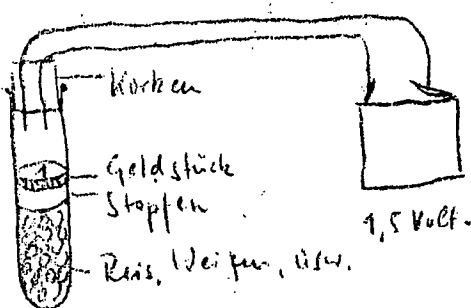 Korken
Geldstück
Stopfen
Reis, Weizen, usw.
1,5 Volt.
1